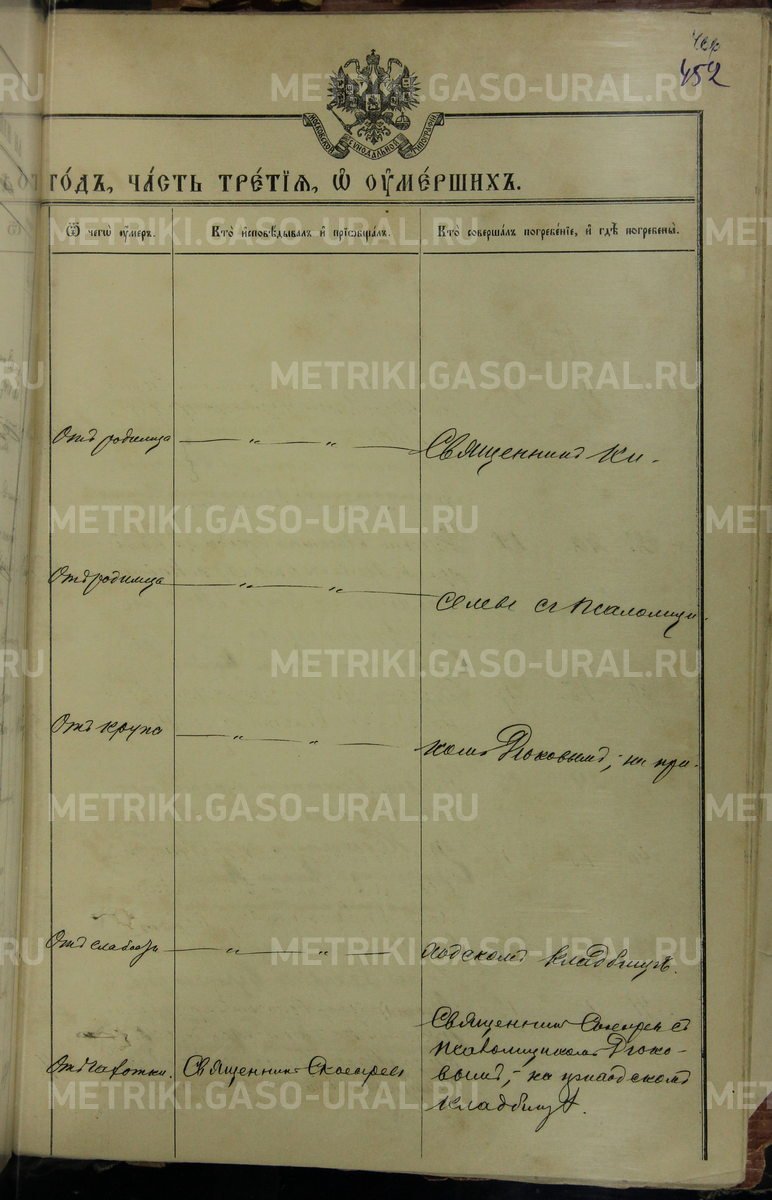 Чер
452
МОСКОВСКОЙ СѴНОДАЛЬНОЙ ТИПОГРАФІИ
го́дъ, ча́сть тре́тїѧ, ѡ҆ ᲂу҆ме́ршихъ.
Ѿ чегѡ̀ ᲂу҆́меръ.
Кто̀ и҆сповѣ́дывалъ и҆ прїѡбща́лъ.
Кто̀ соверша́лъ погребе́нїе, и҆ гдѣ̀ погребены̀.
Отъ родимца — „ — „ — Священникъ
Отъ родимца — „ — „ — съ псаломщи-
Отъ крупа — „ — „ — комъ Дьоковымъ; на при-
Отъ слабости — „ — „ — ходскомъ кладбищѣ.
Священникъ съ
псаломщикомъ Дьоко-
Отъ чахотки. Священникъ
вымъ, на приходскомъ
кладбищѣ.
METRIKI.GASO-URAL.RU